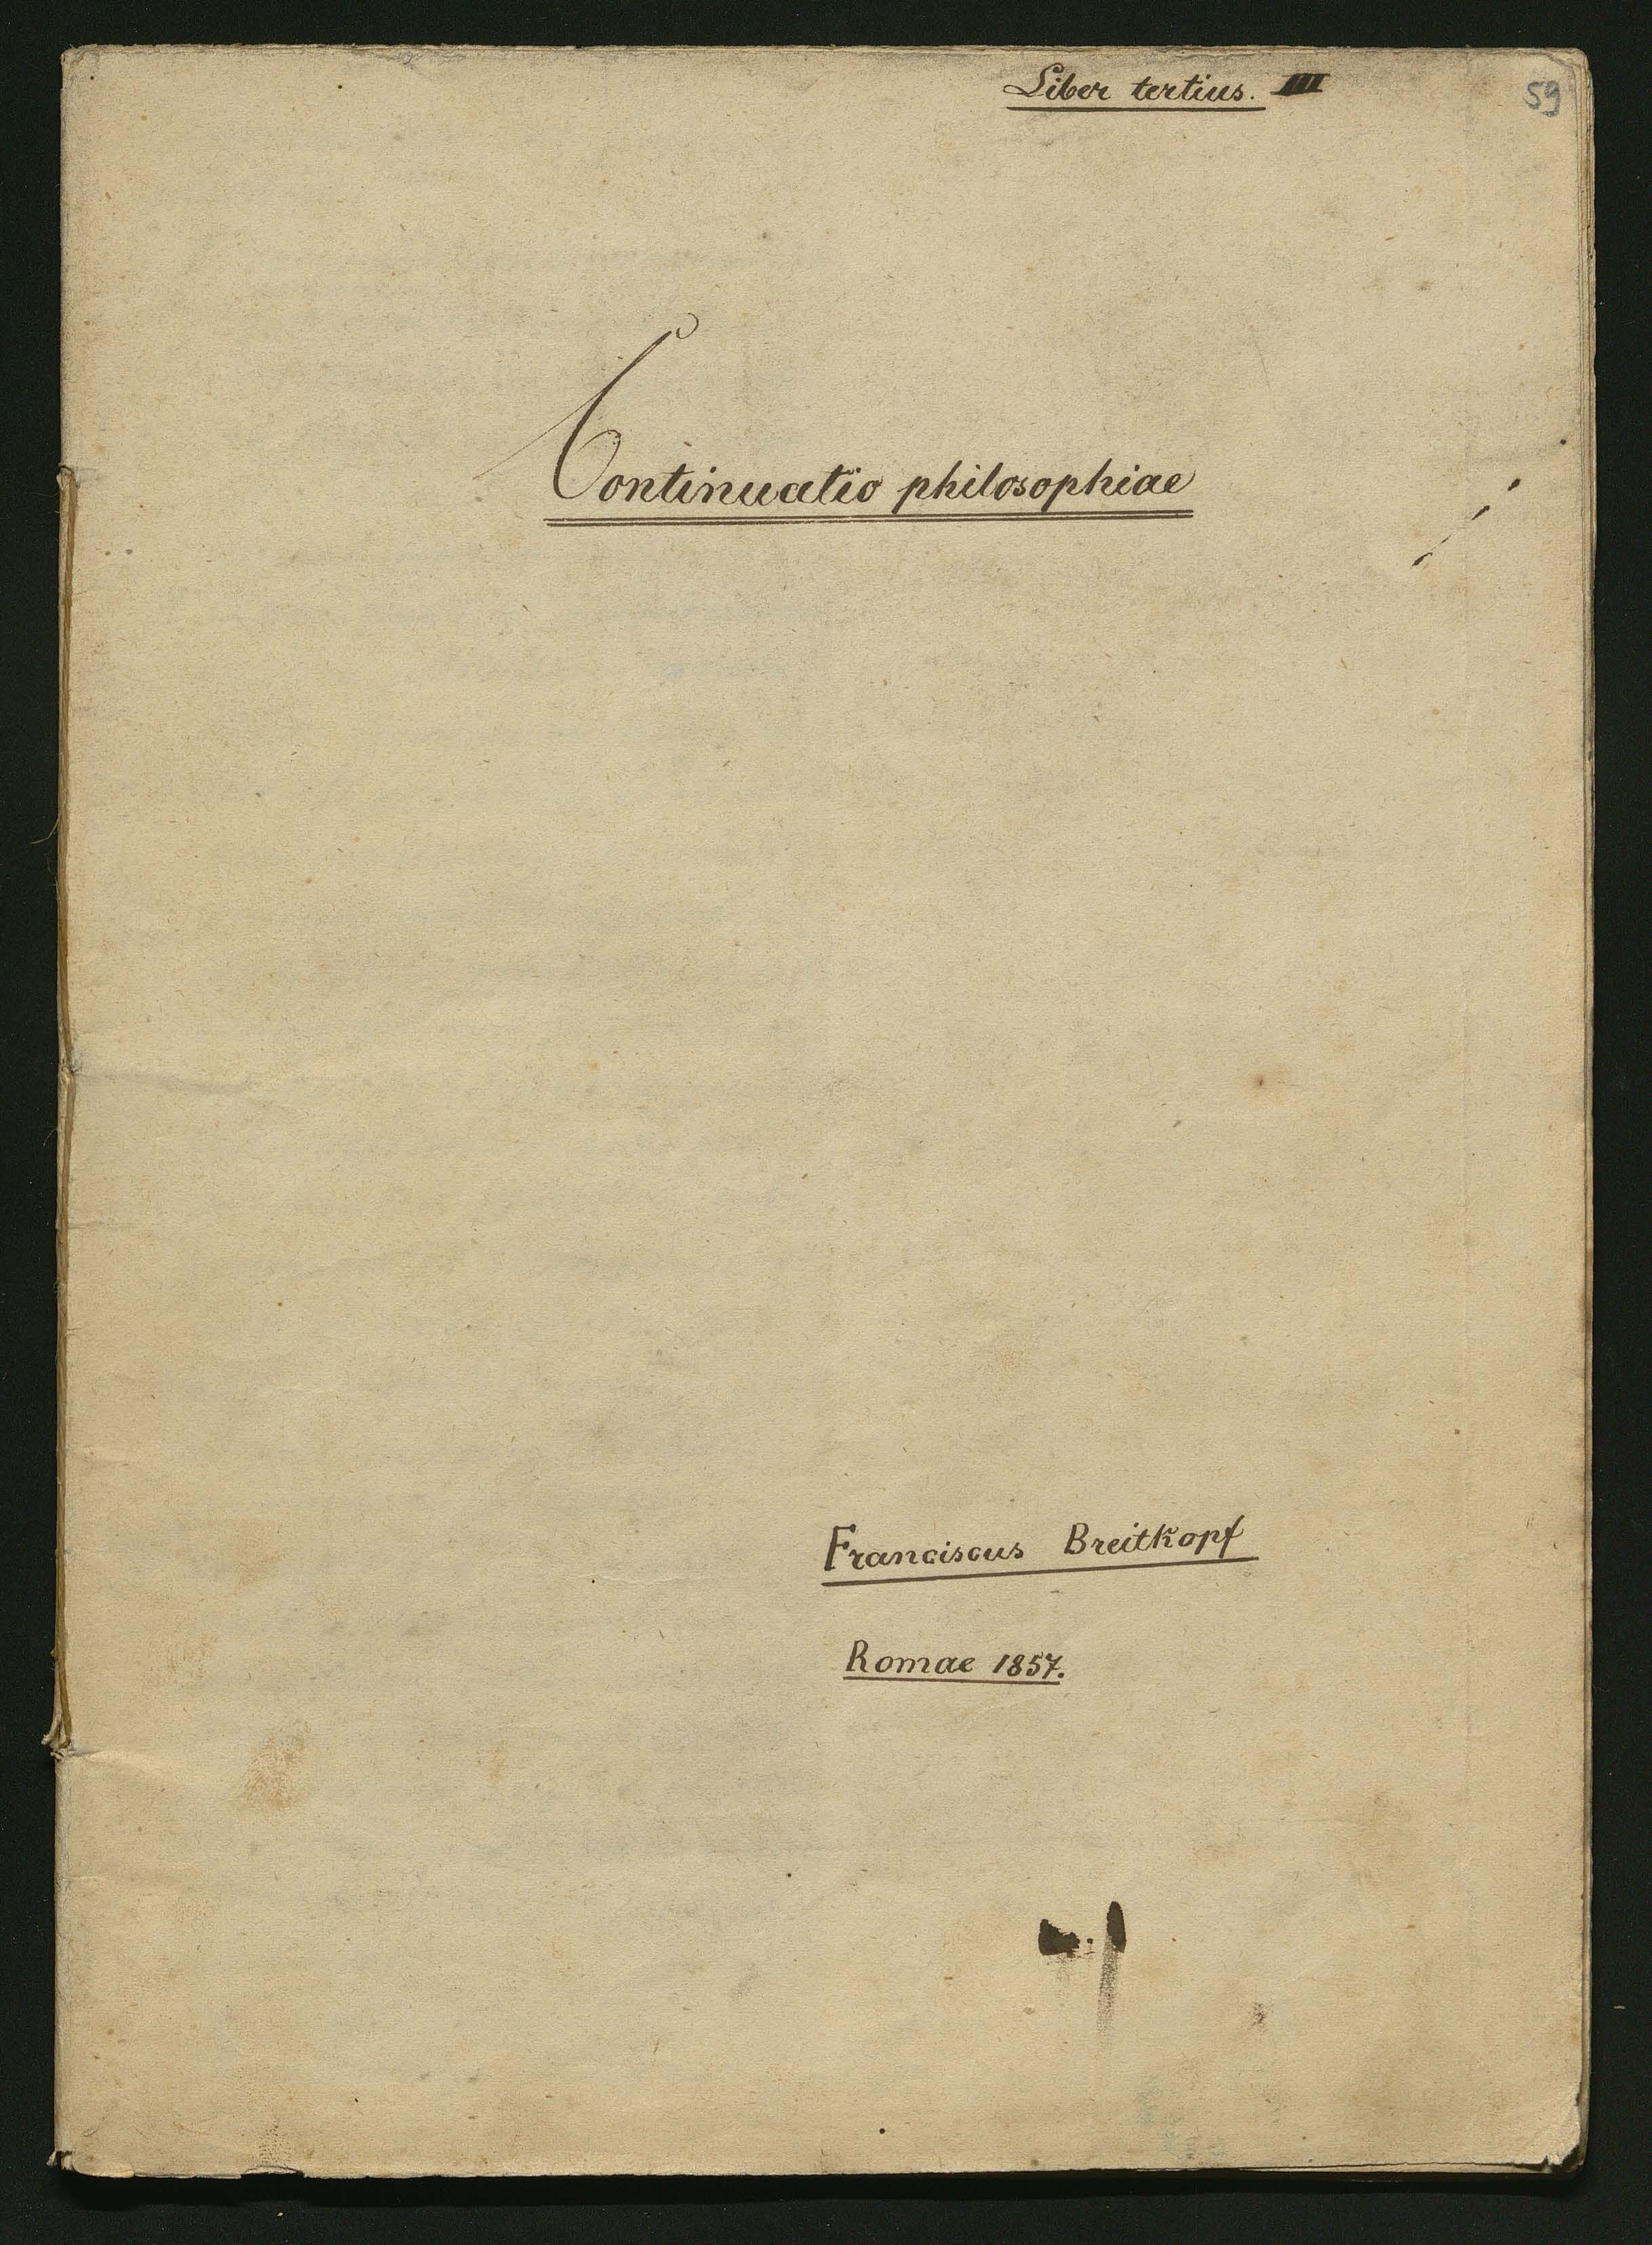 Liber tertius. III
59
Continuatio philosophiae
Franciscus Breitkopf
Romae 1857.